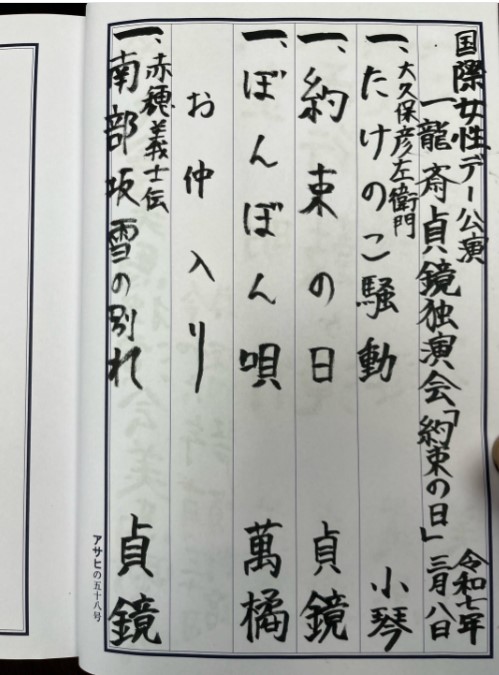 国際女性デー公演
一龍斎貞鏡独演会「約束の日」
令和七年
三月八日
大久保彦左衛門
一、たけのこ騒動 小琴
一、約束の日 貞鏡
一、ぼんぼん唄 萬橘
お仲入り
赤穂義士伝
一、南部坂雪の別れ 貞鏡
アサヒの五十八号